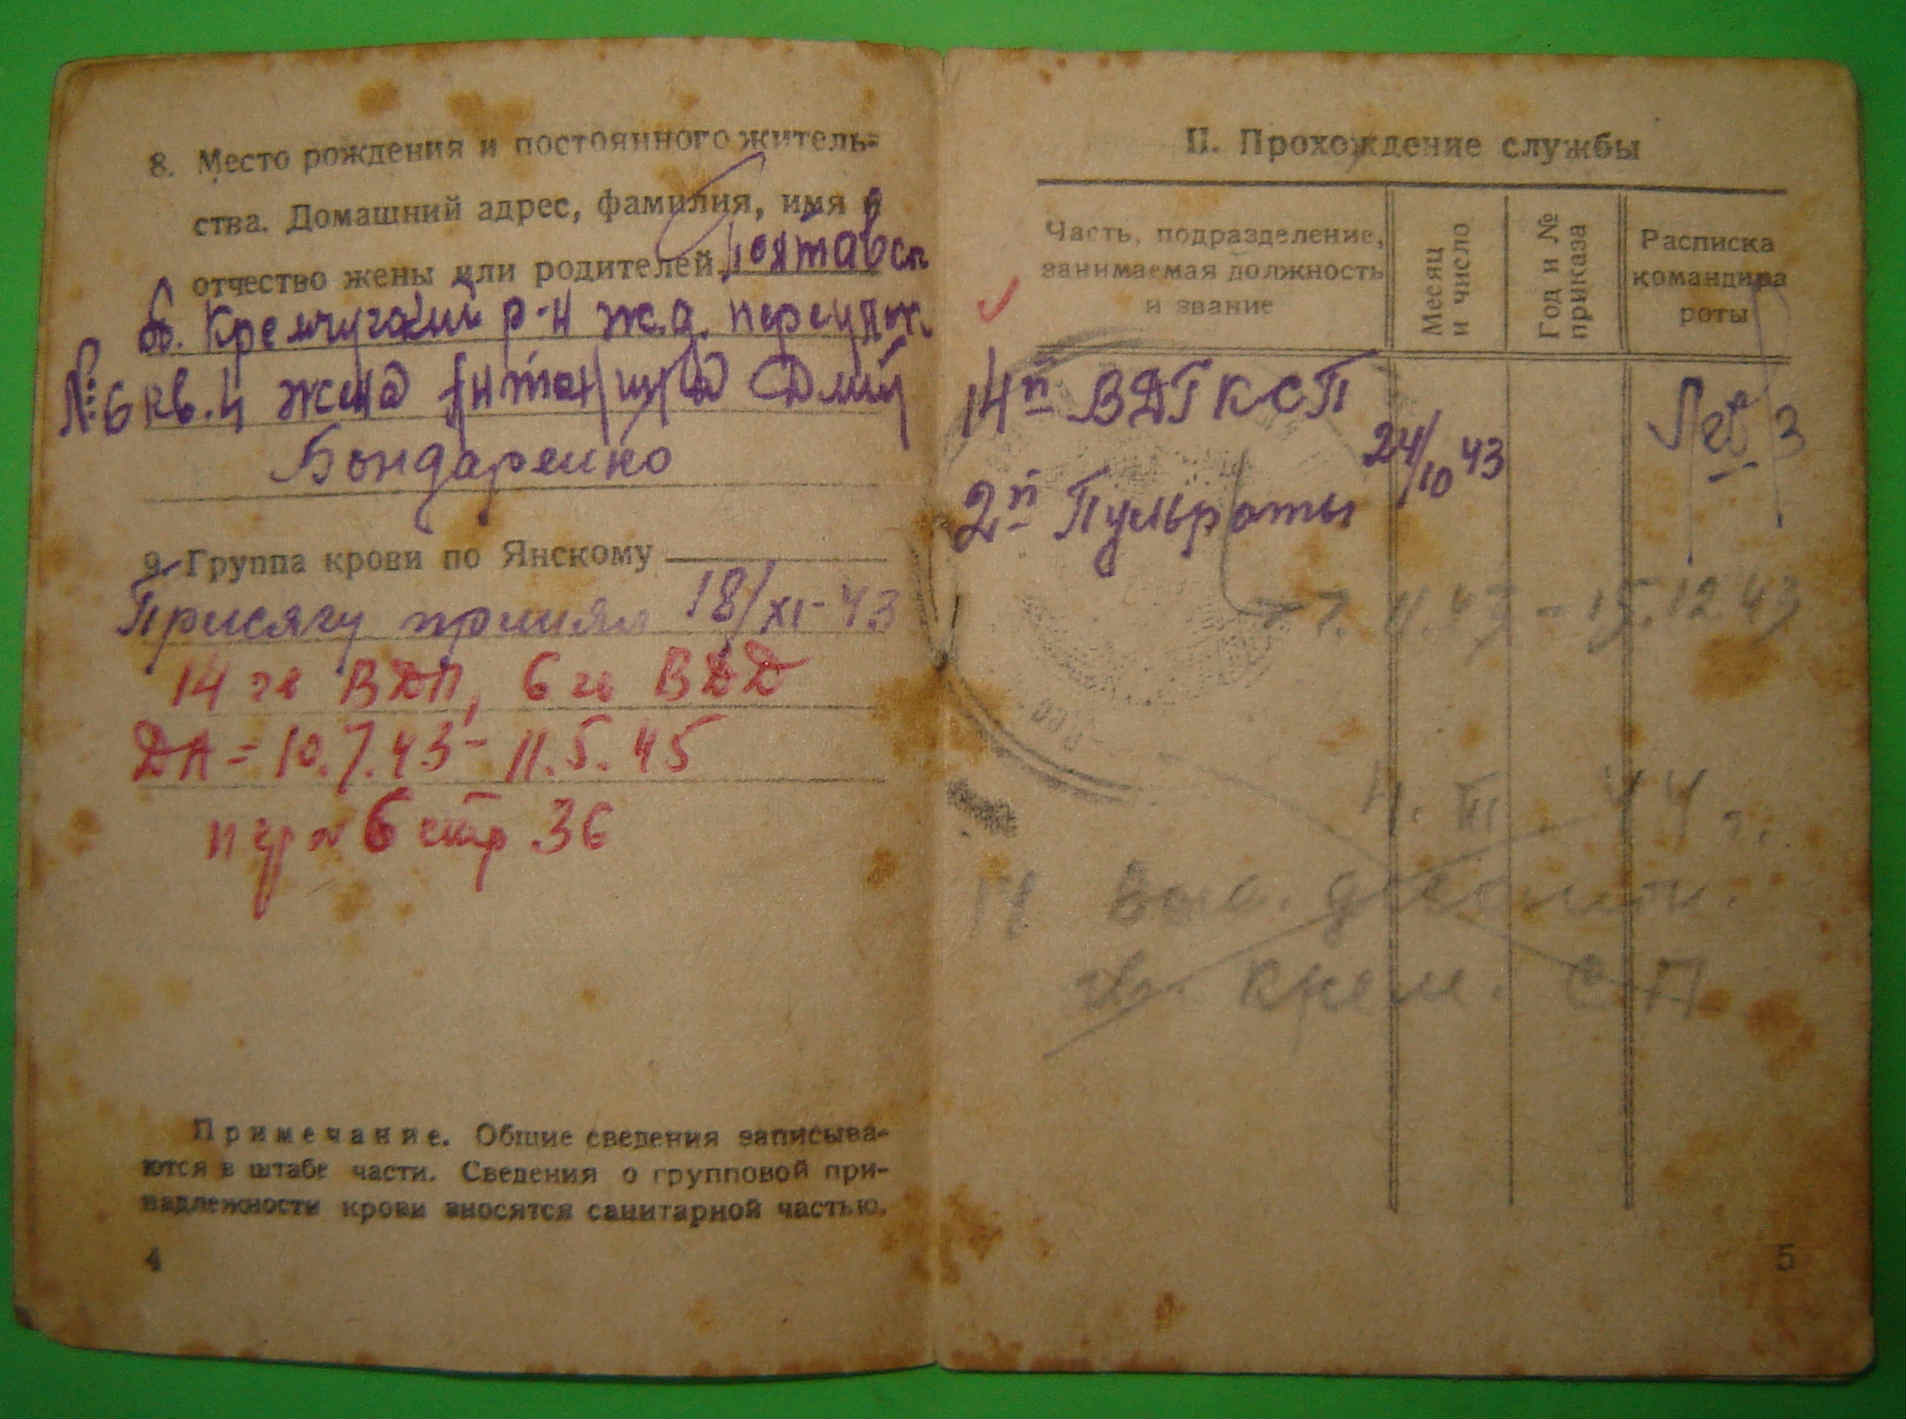 8. Место рождения и постоянного житель-
ства. Домашний адрес, фамилия, имя и
отчество жены или родителей Полтавск
об. Кремчугский р-н ж.д. переулок
№ 6 кв. 4 жена
Бондаренко
9. Группа крови по Янскому
Присягу принял 18/XI-43
14 гв ВДП, 6 гв ВДД
ДА = 10.7.43 - 11.5.45
пер № 6 стр. 36
Примечание. Общие сведения записыва-
ются в штабе части. Сведения о групповой при-
надлежности крови вносятся санитарной частью.
4
II. Прохождение службы
Часть, подразделение,
занимаемая должность
и звание
Месяц
и число
Год и №
приказа
Расписка
командира
роты
14й ВДГКСП
24/10 43
2й Пульроты
7.11.43 - 15.12.43
4. III 44 г.
14 Возд. десантн.
гв. Крем. СП
5